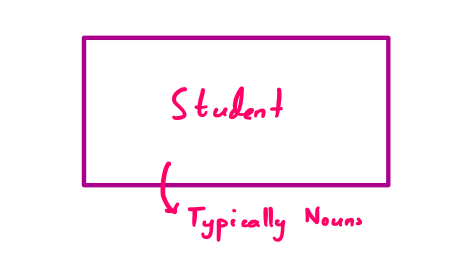 Student
Typically Nouns